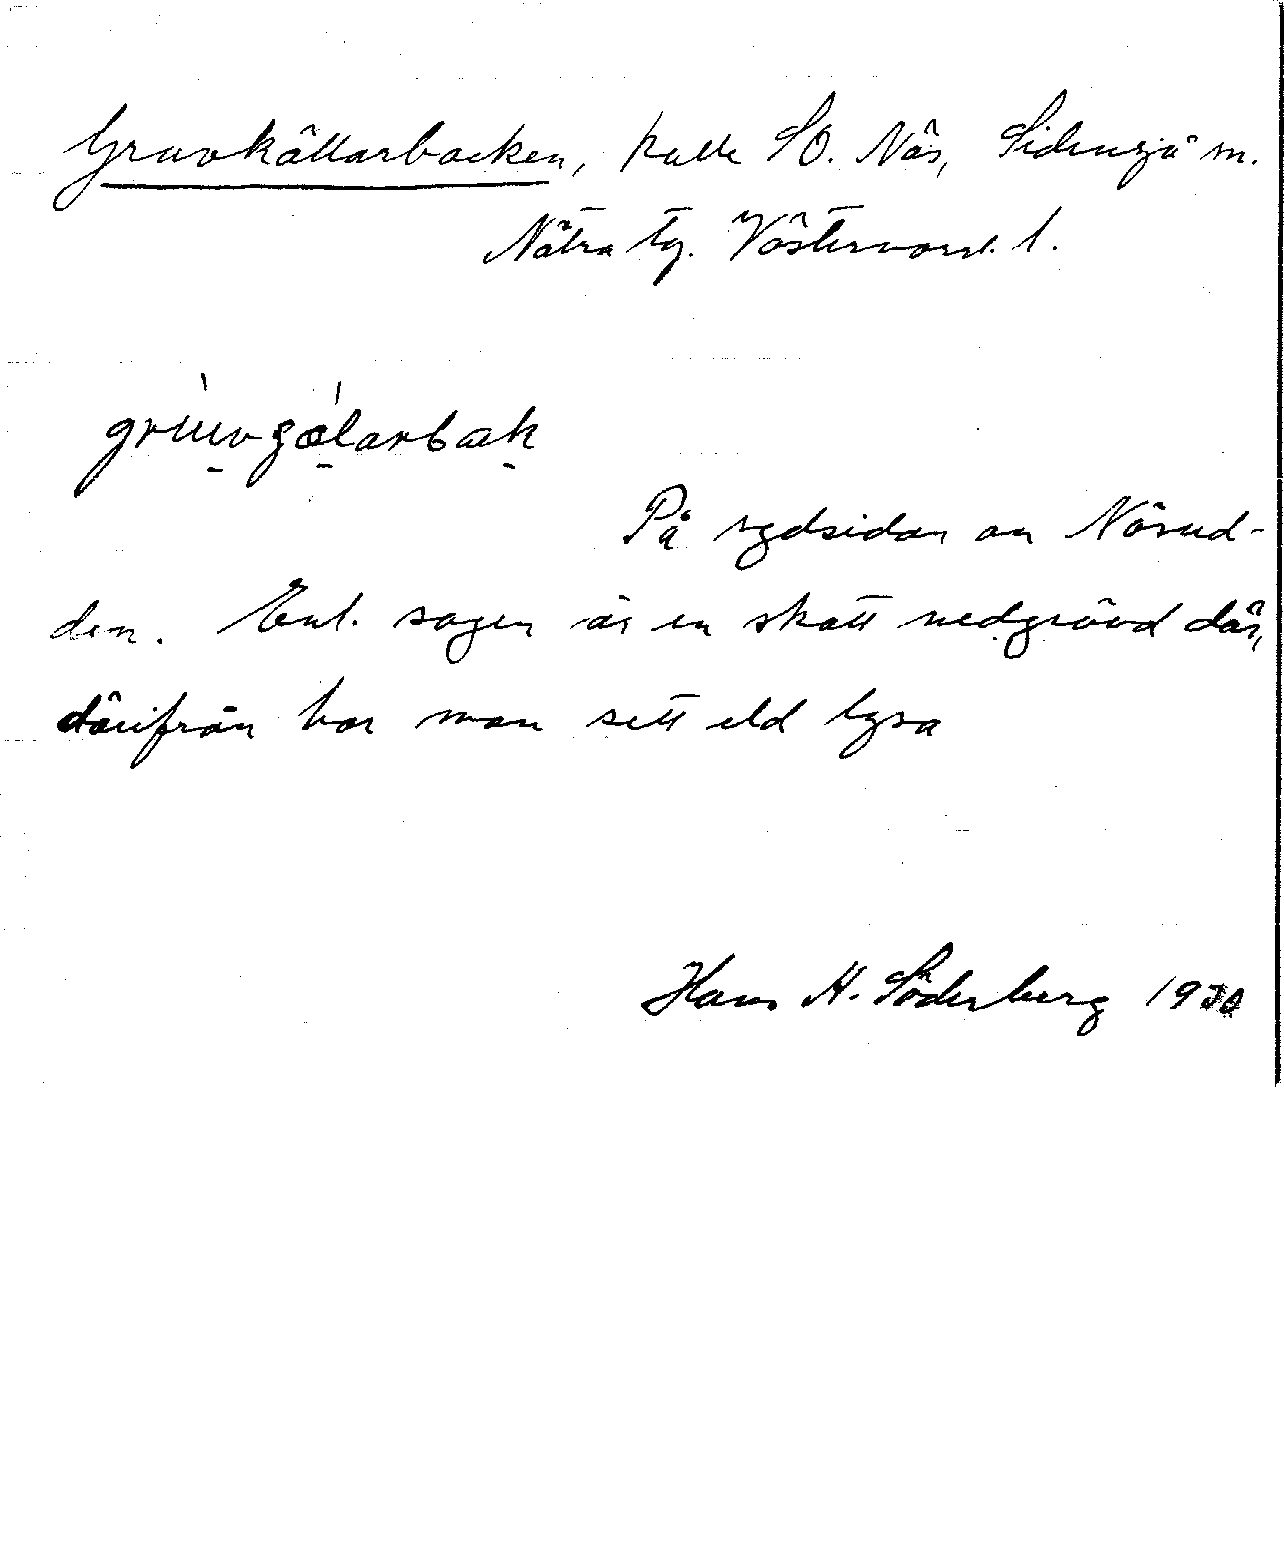 Gruvkällarbacken, kulle SO. Näs, Sidensjö sn.
Nätra tg. Västernorrl. l.
På sydsidan av Näsud-
den. Enl. sagen är en skatt nedgrävd där,
därifrån har man sett eld lysa
Hans H. Söderberg 1930